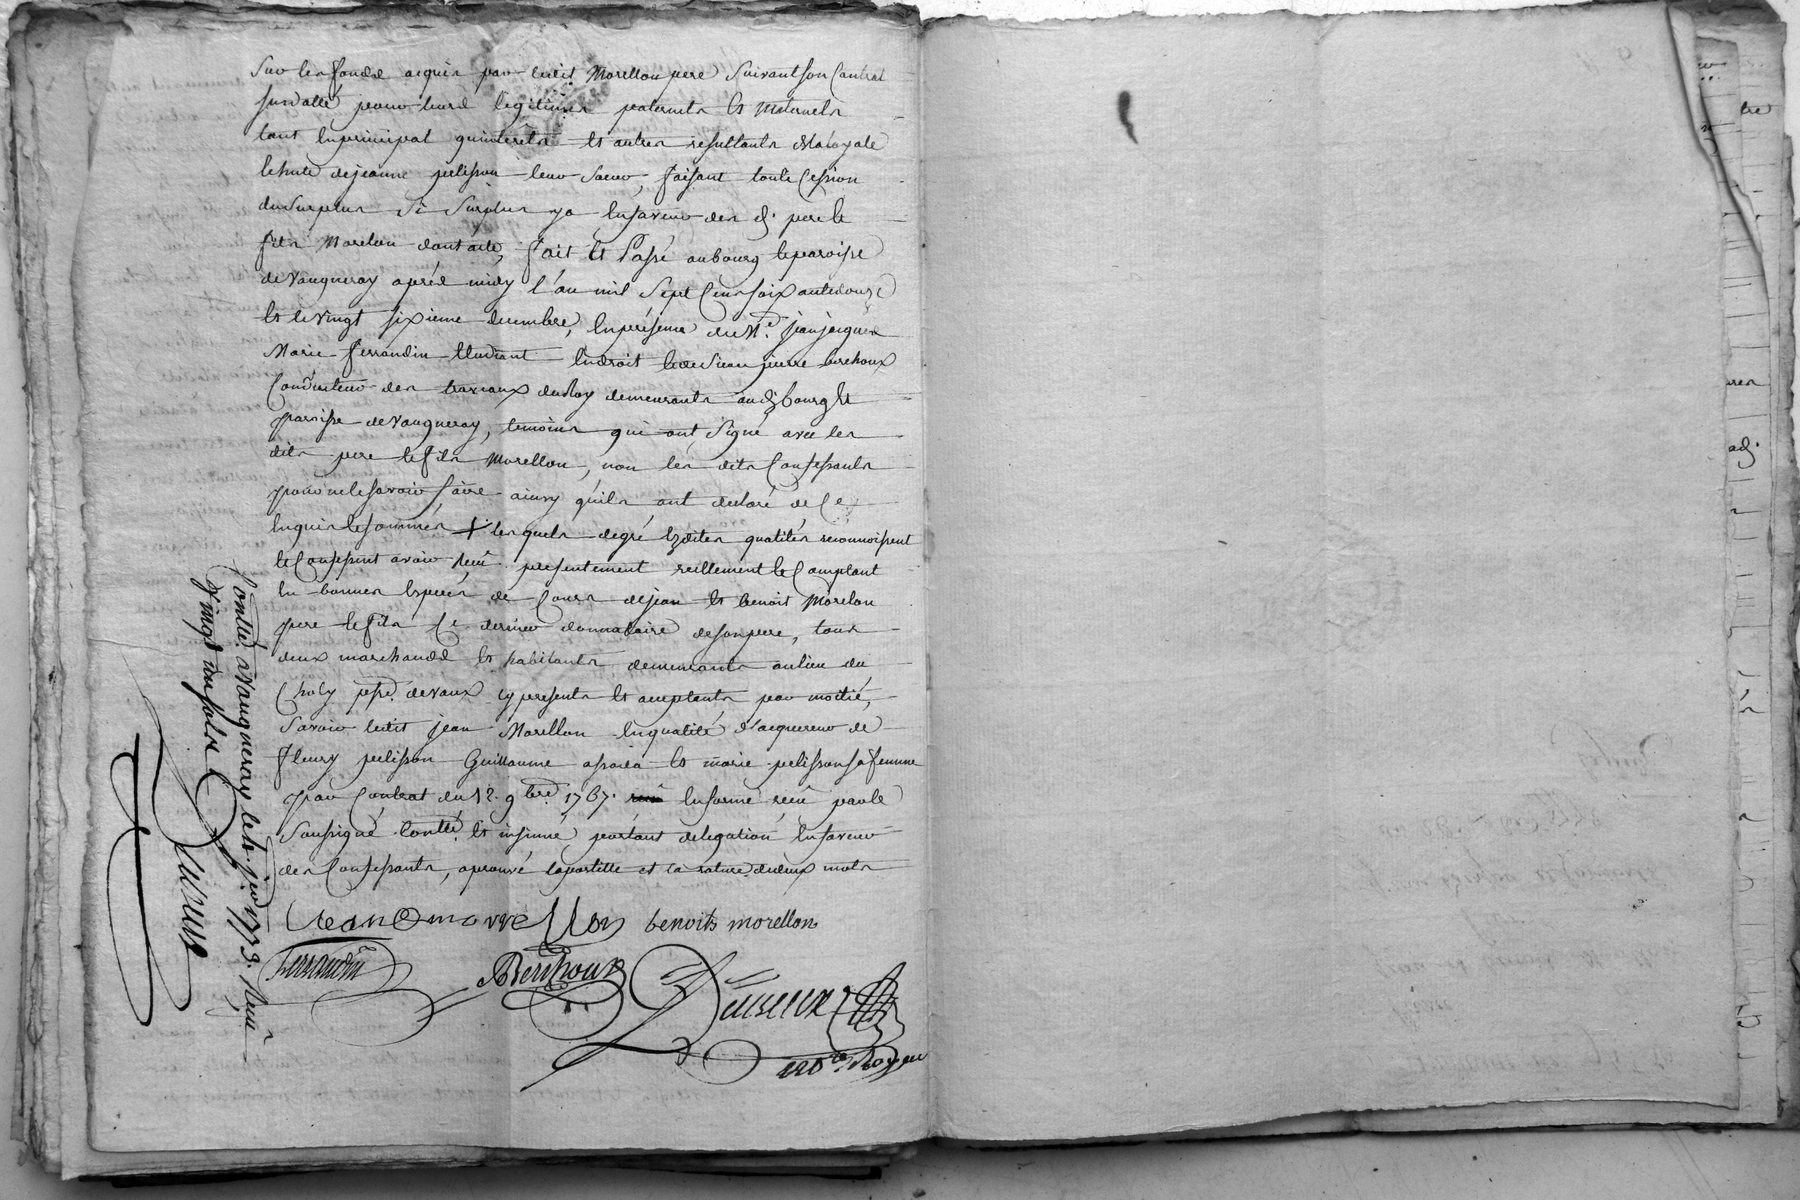 Sur les fonds acquis par ledit Morellon pere Suivant son Contrat
susdatté pour leurs legitimes paternels Et Maternels
tant En principal qu'interêts Et autres resultants de la
de jeanne pelisson leur Soeur, faisant toute Cession
du Surplus Si Surplus y a En faveur des d. pere Et
fils Morellon dont acte, fait Et Passé au bourg Et paroisse
de Vaugneray aprés midy l'an mil Sept Cens soixante douze
Et le vingt sixieme decembre, En présence de Me. jean jacques
Marie ferrandin Etudiant En droit Et de Sieur pierre berthoux
Conducteur des travaux du Roy demeurants audt. bourg Et
paroisse de Vaugneray, temoins qui ont Signé avec les
dits pere Et fils Morellon, non les dits Confessants
pour ne le savoir faire ainsy qu'ils ont declaré de Ce
Enquis Et sommés + lesquels de gré Ezdites qualités reconnoissent
Et Confessent avoir reçû presentement réellement Et Comptant
En bonnes Especes de Cours de jean Et benoit Morelon
pere Et fils Ce dernier donnataire de son pere, tous
deux marchands Et habitants demeurants au lieu du
Choly psse. de Vaux cy presents Et acceptants par moitié,
Savoir ledit jean Morellon En qualité d'acquereur de
fleury pelisson Guillaume assada Et marie pelisson sa femme
par Contrat du 12. 9bre. 1767. En forme reçû par le
Soussigné Contlé. Et insinué, portant delegation En faveur
des Confessants, aprouvé l'apostille et la rature de deux mots
Jean morellon benoits morellon
ferrandin
Berthoux
Nore. Royal
Contlé. à Vaugneray le
1773. Reçû
Vingt un sols